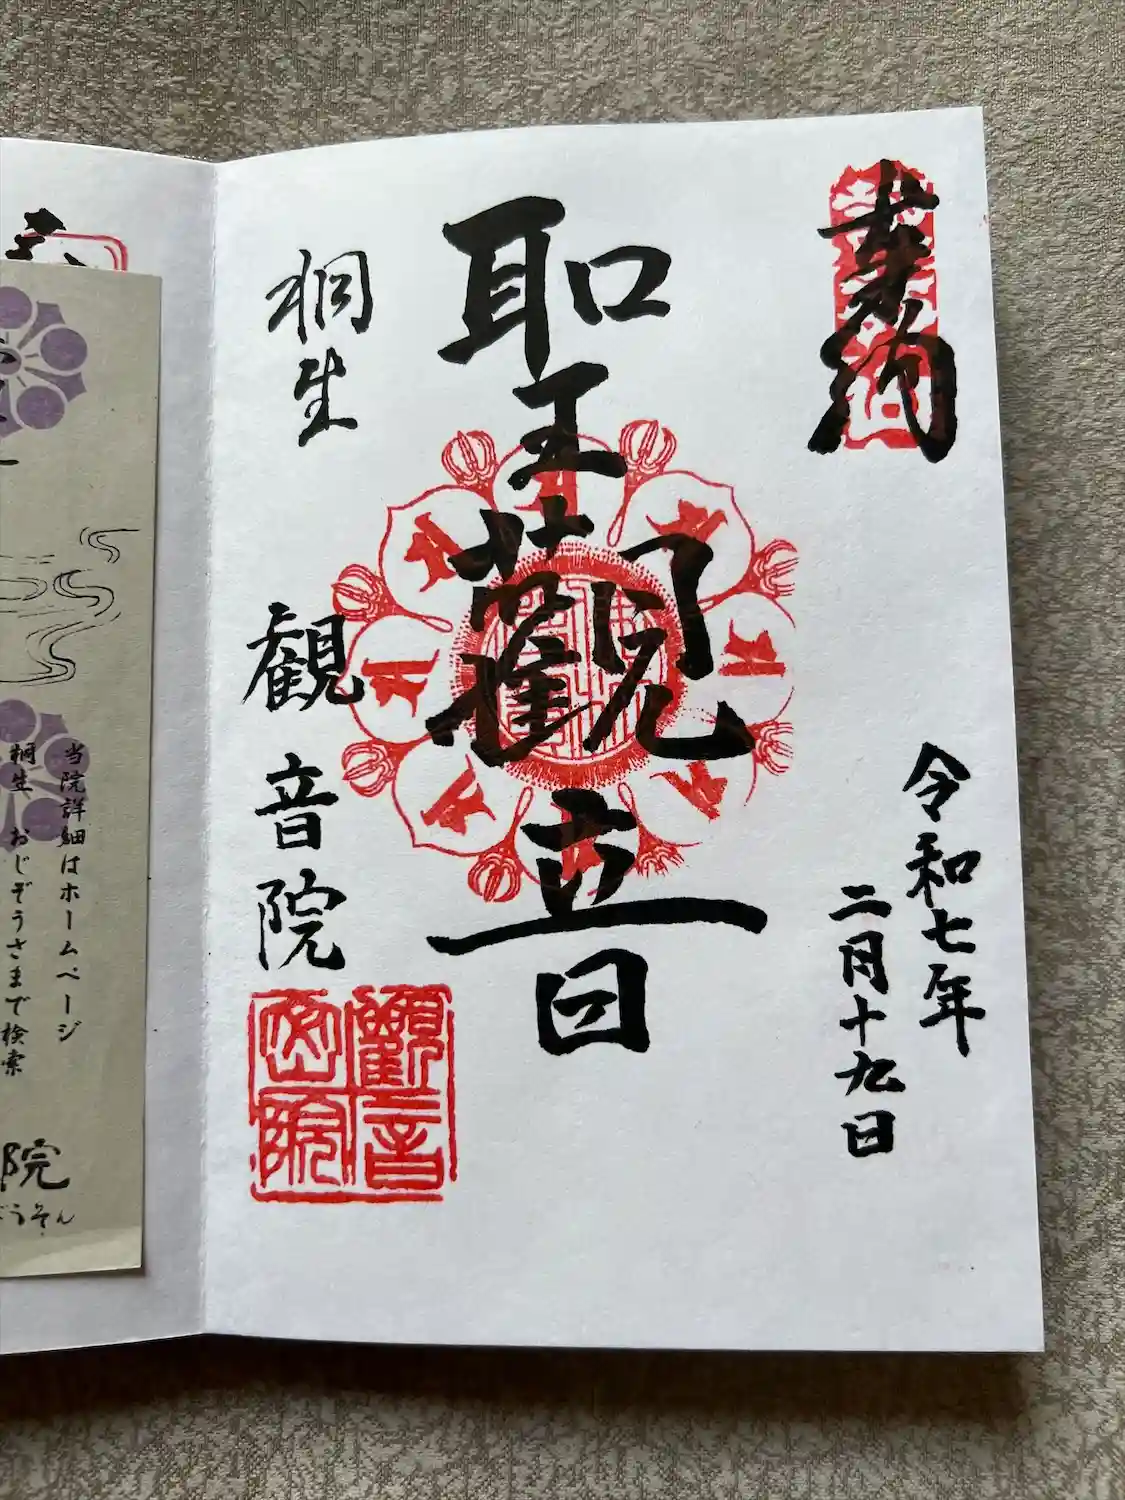 奉拝
令和七年
二月十九日
聖觀音
桐生
観音院
觀音
密院
当院詳細はホームページ
桐生 おじぞうさまで検索
院
うそん